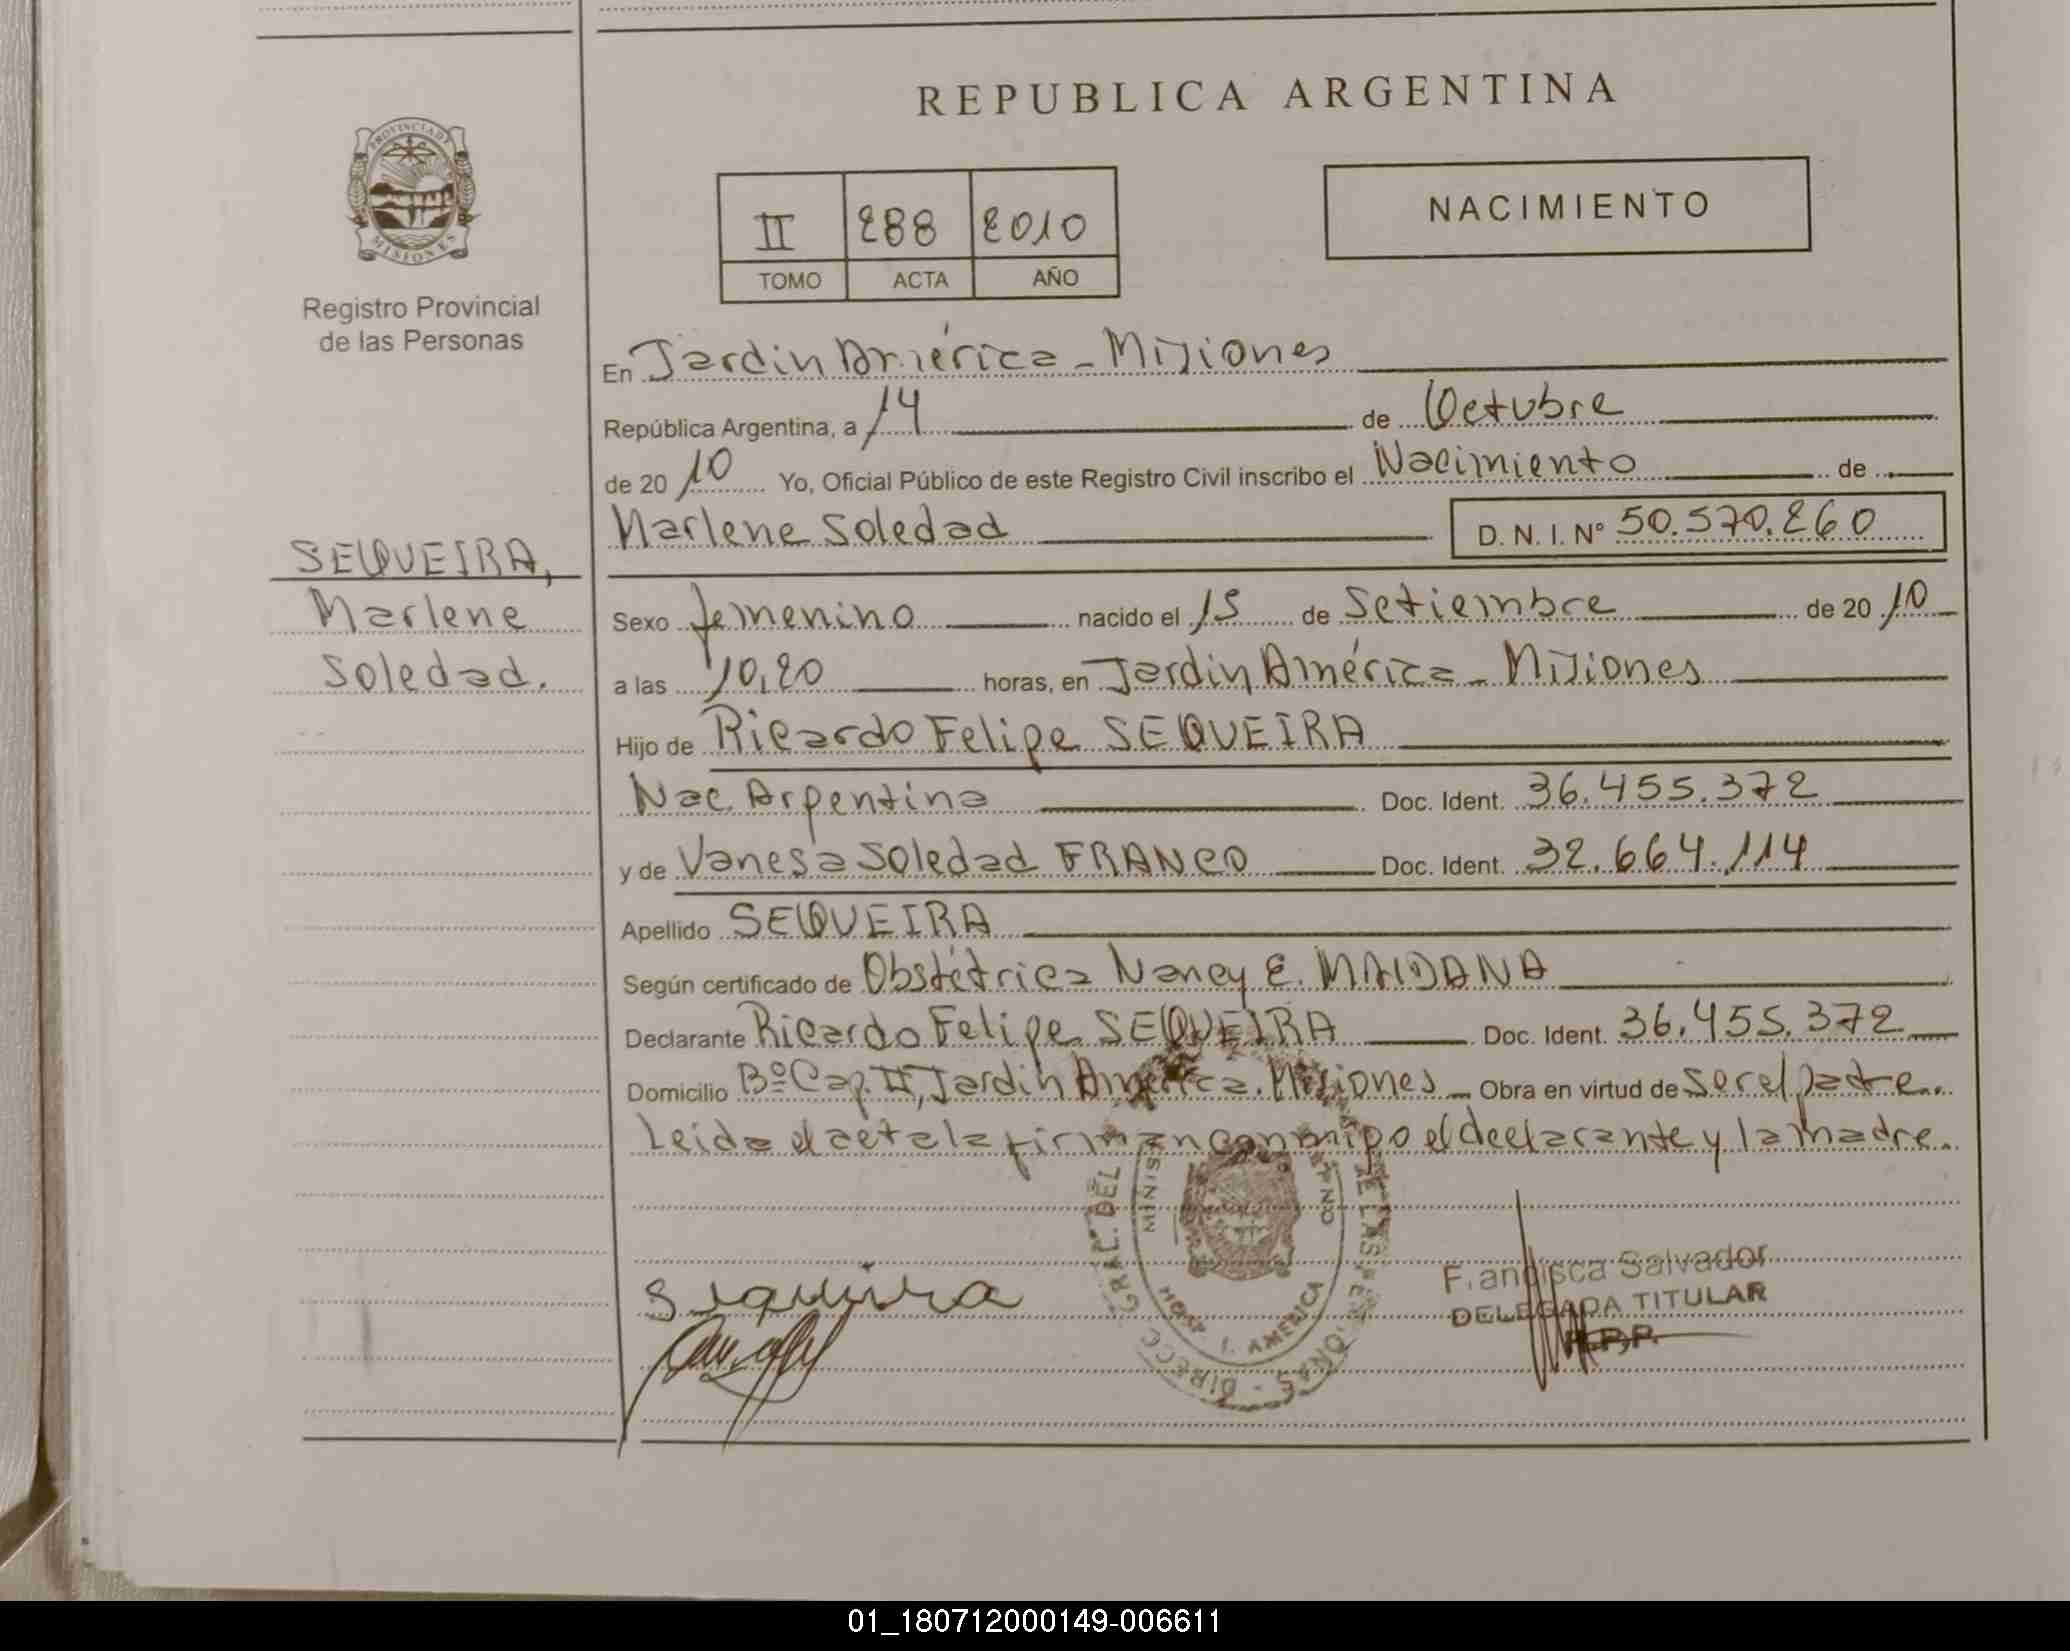 REPUBLICA ARGENTINA
PROVINCIA D
MISIONES
Registro Provincial
de las Personas
II 288 2010
TOMO ACTA AÑO
NACIMIENTO
En Jardin América - Misiones
República Argentina, a 14 de Octubre
de 20 10 Yo, Oficial Público de este Registro Civil inscribo el Nacimiento de
Marlene Soledad D. N. I. Nº 50.570.260
SEQUEIRA,
Marlene
Soledad.
Sexo femenino nacido el 15 de Setiembre de 20 10
a las 10,20 horas, en Jardin América - Misiones
Hijo de Ricardo Felipe SEQUEIRA
Nac. Argentina Doc. Ident. 36.455.372
y de Vanesa Soledad FRANCO Doc. Ident. 32.664.114
Apellido SEQUEIRA
Según certificado de Obstétrica Nancy E. MAIDANA
Declarante Ricardo Felipe SEQUEIRA Doc. Ident. 36.455.372
Domicilio Bº Cap. II, Jardin América. Misiones Obra en virtud de ser el padre.
Leida el acta la firman conmigo el declarante y la madre.
DIRECC GRAL. DEL DE LAS
MINIS
J. AMERICA
Sequeira
Francisca Salvador
DELEGADA TITULAR
R.P.P.
01_180712000149-006611